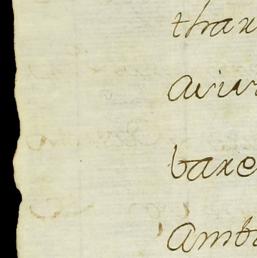 thax
aviv
baxe
amb